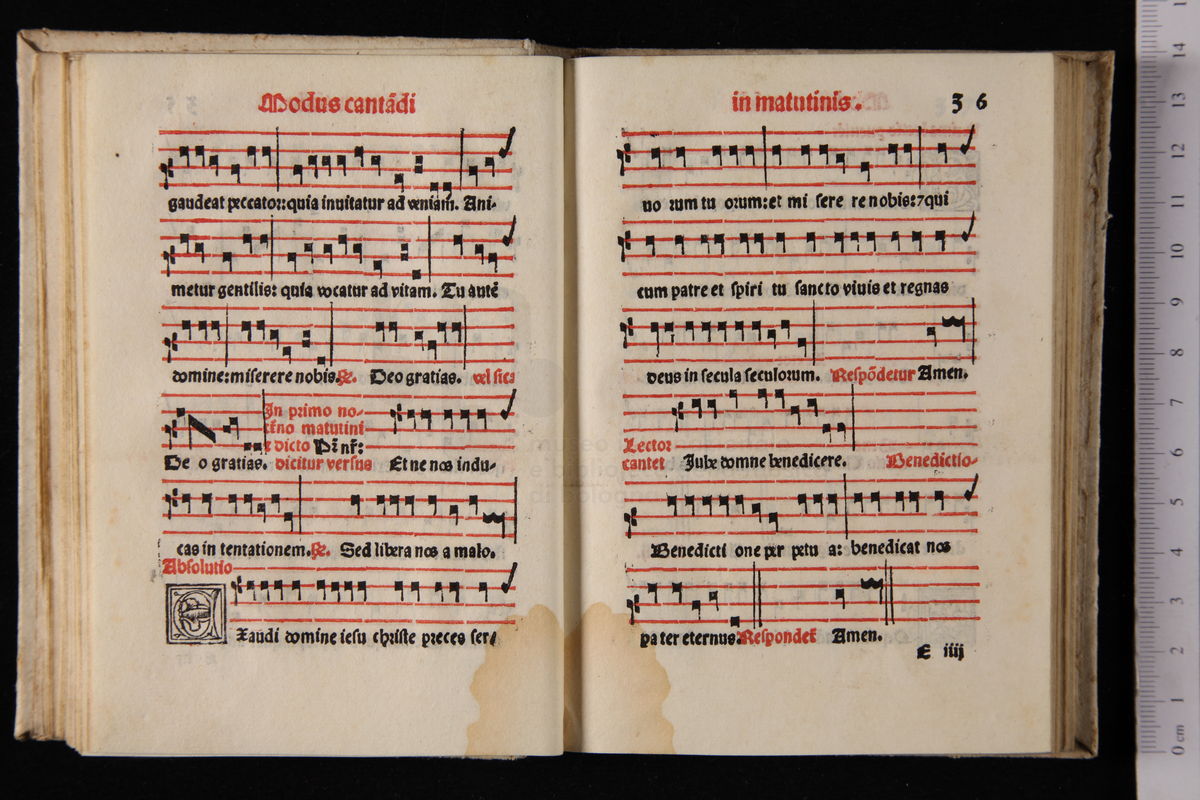 Modus cantādi
gaudeat peccator: quia inuitatur ad veniam. Ani-
metur gentilis: quia vocatur ad vitam. Tu autē
domine: miserere nobis. ℞. Deo gratias. vel sic:
In primo no-
cturno matutini
dicto Pr̄ nr̄:
De o gratias. dicitur versus Et ne nos indu-
cas in tentationem. ℞. Sed libera nos a malo.
Absolutio
Exaudi domine iesu christe preces ser/
in matutinis. 36
uo rum tu orum: et mi sere re nobis: ⁊ qui
cum patre et spiri tu sancto viuis et regnas
deus in secula seculorum. Respōdetur Amen.
Lector
cantet Jube domne benedicere. Benedictio-
Benedicti one per petu a: benedicat nos
pa ter eternus. Respondet Amen.
E iiij
museo
e biblio
di bologna
14
13
12
11
10
9
8
7
6
5
4
3
2
1
0 cm